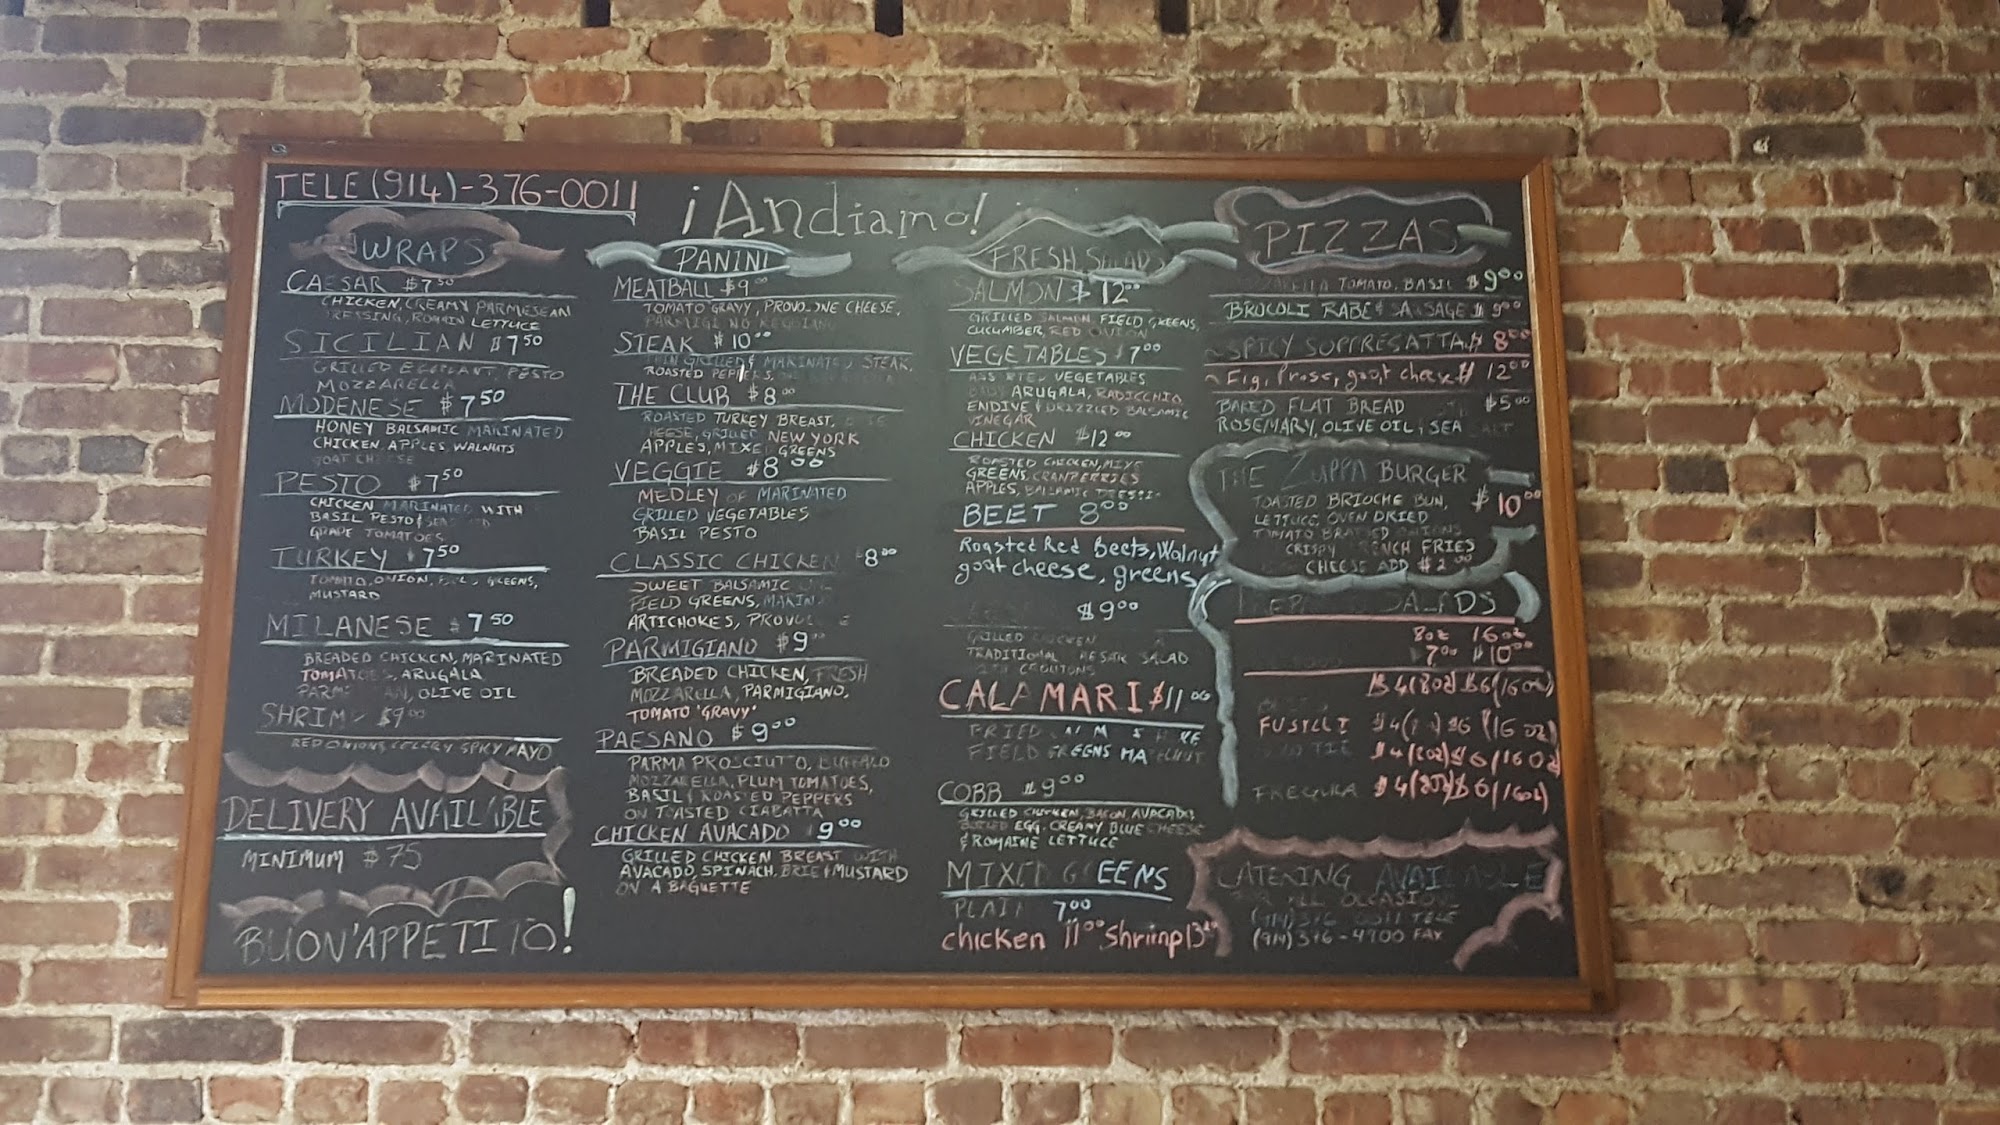 TELE (914)-376-0011
¡Andiamo!
WRAPS
CAESAR $7.50
CHICKEN, CREAMY PARMESEAN
ROMAIN LETTUCE
SICILIAN $7.50
GRILLED EGGPLANT, PESTO
MOZZARELLA
MODENESE $7.50
HONEY BALSAMIC MARINATED
CHICKEN, APPLES, WALNUTS
GOAT CHEESE
PESTO $7.50
CHICKEN MARINATED WITH
BASIL PESTO &
GRAPE TOMATOES
TURKEY $7.50
TOMATO, ONION, GREENS,
MUSTARD
MILANESE $7.50
BREADED CHICKEN, MARINATED
TOMATOES, ARUGALA
OLIVE OIL
SHRIMP $9.00
RED ONIONS, CELERY SPICY MAYO
DELIVERY AVAILABLE
MINIMUM $75
BUON'APPETITO!
PANINI
MEATBALL $9.00
TOMATO GRAVY, PROVOLONE CHEESE,
STEAK $10.00
THIN GRILLED & MARINATED STEAK,
ROASTED PEPPERS,
THE CLUB $8.00
ROASTED TURKEY BREAST,
CHEESE, GRILLED NEW YORK
APPLES, MIXED GREENS
VEGGIE $8.00
MEDLEY OF MARINATED
GRILLED VEGETABLES
BASIL PESTO
CLASSIC CHICKEN $8.00
SWEET BALSAMIC
FIELD GREENS,
ARTICHOKES,
PARMIGIANO $9.00
BREADED CHICKEN, FRESH
MOZZARELLA, PARMIGIANO,
TOMATO 'GRAVY'
PAESANO $9.00
PARMA PROSCIUTTO, BUFFALO
MOZZARELLA, PLUM TOMATOES,
BASIL & ROASTED PEPPERS
ON TOASTED CIABATTA
CHICKEN AVACADO $9.00
GRILLED CHICKEN BREAST WITH
AVACADO, SPINACH, BRIE & MUSTARD
ON A BAGUETTE
FRESH SALADS
SALMON $12.00
GRILLED SALMON FIELD GREENS,
CUCUMBER, RED ONION
VEGETABLES $7.00
VEGETABLES
BABY ARUGALA, RADICCHIO
ENDIVE & DRIZZLED BALSAMIC
VINEGAR
CHICKEN $12.00
ROASTED CHICKEN, MIXED
GREENS, CRANBERRIES
APPLES, BALSAMIC
BEET 8.00
Roasted Red Beets, Walnut
goat cheese, greens
$9.00
GRILLED CHICKEN
TRADITIONAL SALAD
CROUTONS
CALAMARI $11.00
FRIED
FIELD GREENS
COBB $9.00
GRILLED CHICKEN, BACON, AVACADO,
EGG, CREAMY BLUE CHEESE
& ROMAINE LETTUCE
MIXED GREENS
PLAIN 7.00
chicken 11.00 Shrimp 13.00
PIZZAS
TOMATO, BASIL $9.00
BROCOLI RABE & SAUSAGE $9.00
SPICY SOPPRESATTA $8.00
Fig, Prosc, goat cheese $12.00
BAKED FLAT BREAD $5.00
ROSEMARY, OLIVE OIL & SEA SALT
THE ZUPPA BURGER
TOASTED BRIOCHE BUN, $10.00
LETTUCE OVEN DRIED
TOMATO BRAISED ONIONS
CRISPY FRENCH FRIES
CHEESE ADD $2.00
SALADS
8oz 16oz
7.00 $10.00
$4(8oz) $6(16oz)
FUSILLI $6 (16oz)
$4(8oz) $6(16oz)
FREGULA $4(8oz) $6(16oz)
CATERING AVAILABLE
ALL OCCASIONS
(914) 376 0011 TELE
(914) 376-4900 FAX